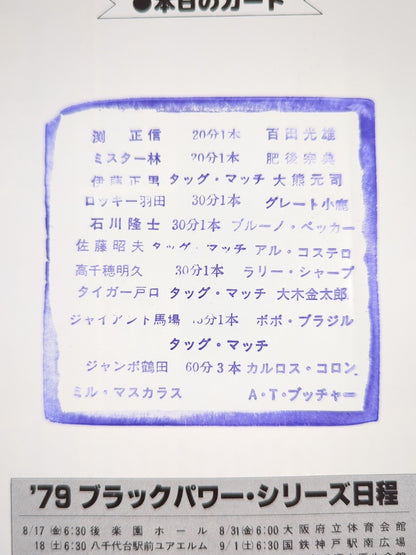 ●本日のカード
渕 正信 20分1本 百田光雄
ミスター林 20分1本 肥後宗典
伊藤正男 タッグ・マッチ 大熊元司
ロッキー羽田 30分1本 グレート小鹿
石川隆士 30分1本 ブルーノ・ベッカー
佐藤昭夫 タッグ・マッチ アル・コステロ
高千穂明久 30分1本 ラリー・シャープ
タイガー戸口 タッグ・マッチ 大木金太郎
ジャイアント馬場 45分1本 ボボ・ブラジル
タッグ・マッチ
ジャンボ鶴田 60分3本 カルロス・コロン
ミル・マスカラス A・T・ブッチャー
'79 ブラックパワー・シリーズ日程
8/17 金 6:30 後楽園ホール 8/31 金 6:00 大阪府立体育会館
18 土 6:30 八千代台駅前ユアエルム 9/1 土 6:30 国鉄神戸駅南広場